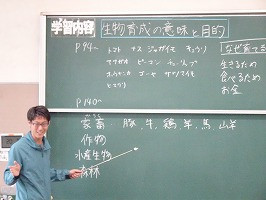 学習内容 生物育成の意味と目的
P94~ トマト ナス ジャガイモ キュウリ
なぜ育てる
アサガオ ピーマン チューリップ
生きるため
ホウレンソウ ゴーヤ サツマイモ
食べるため
ヒマワリ
お金
P140~
家畜 豚、牛、鶏、羊、馬、山羊
作物
水産生物
森林